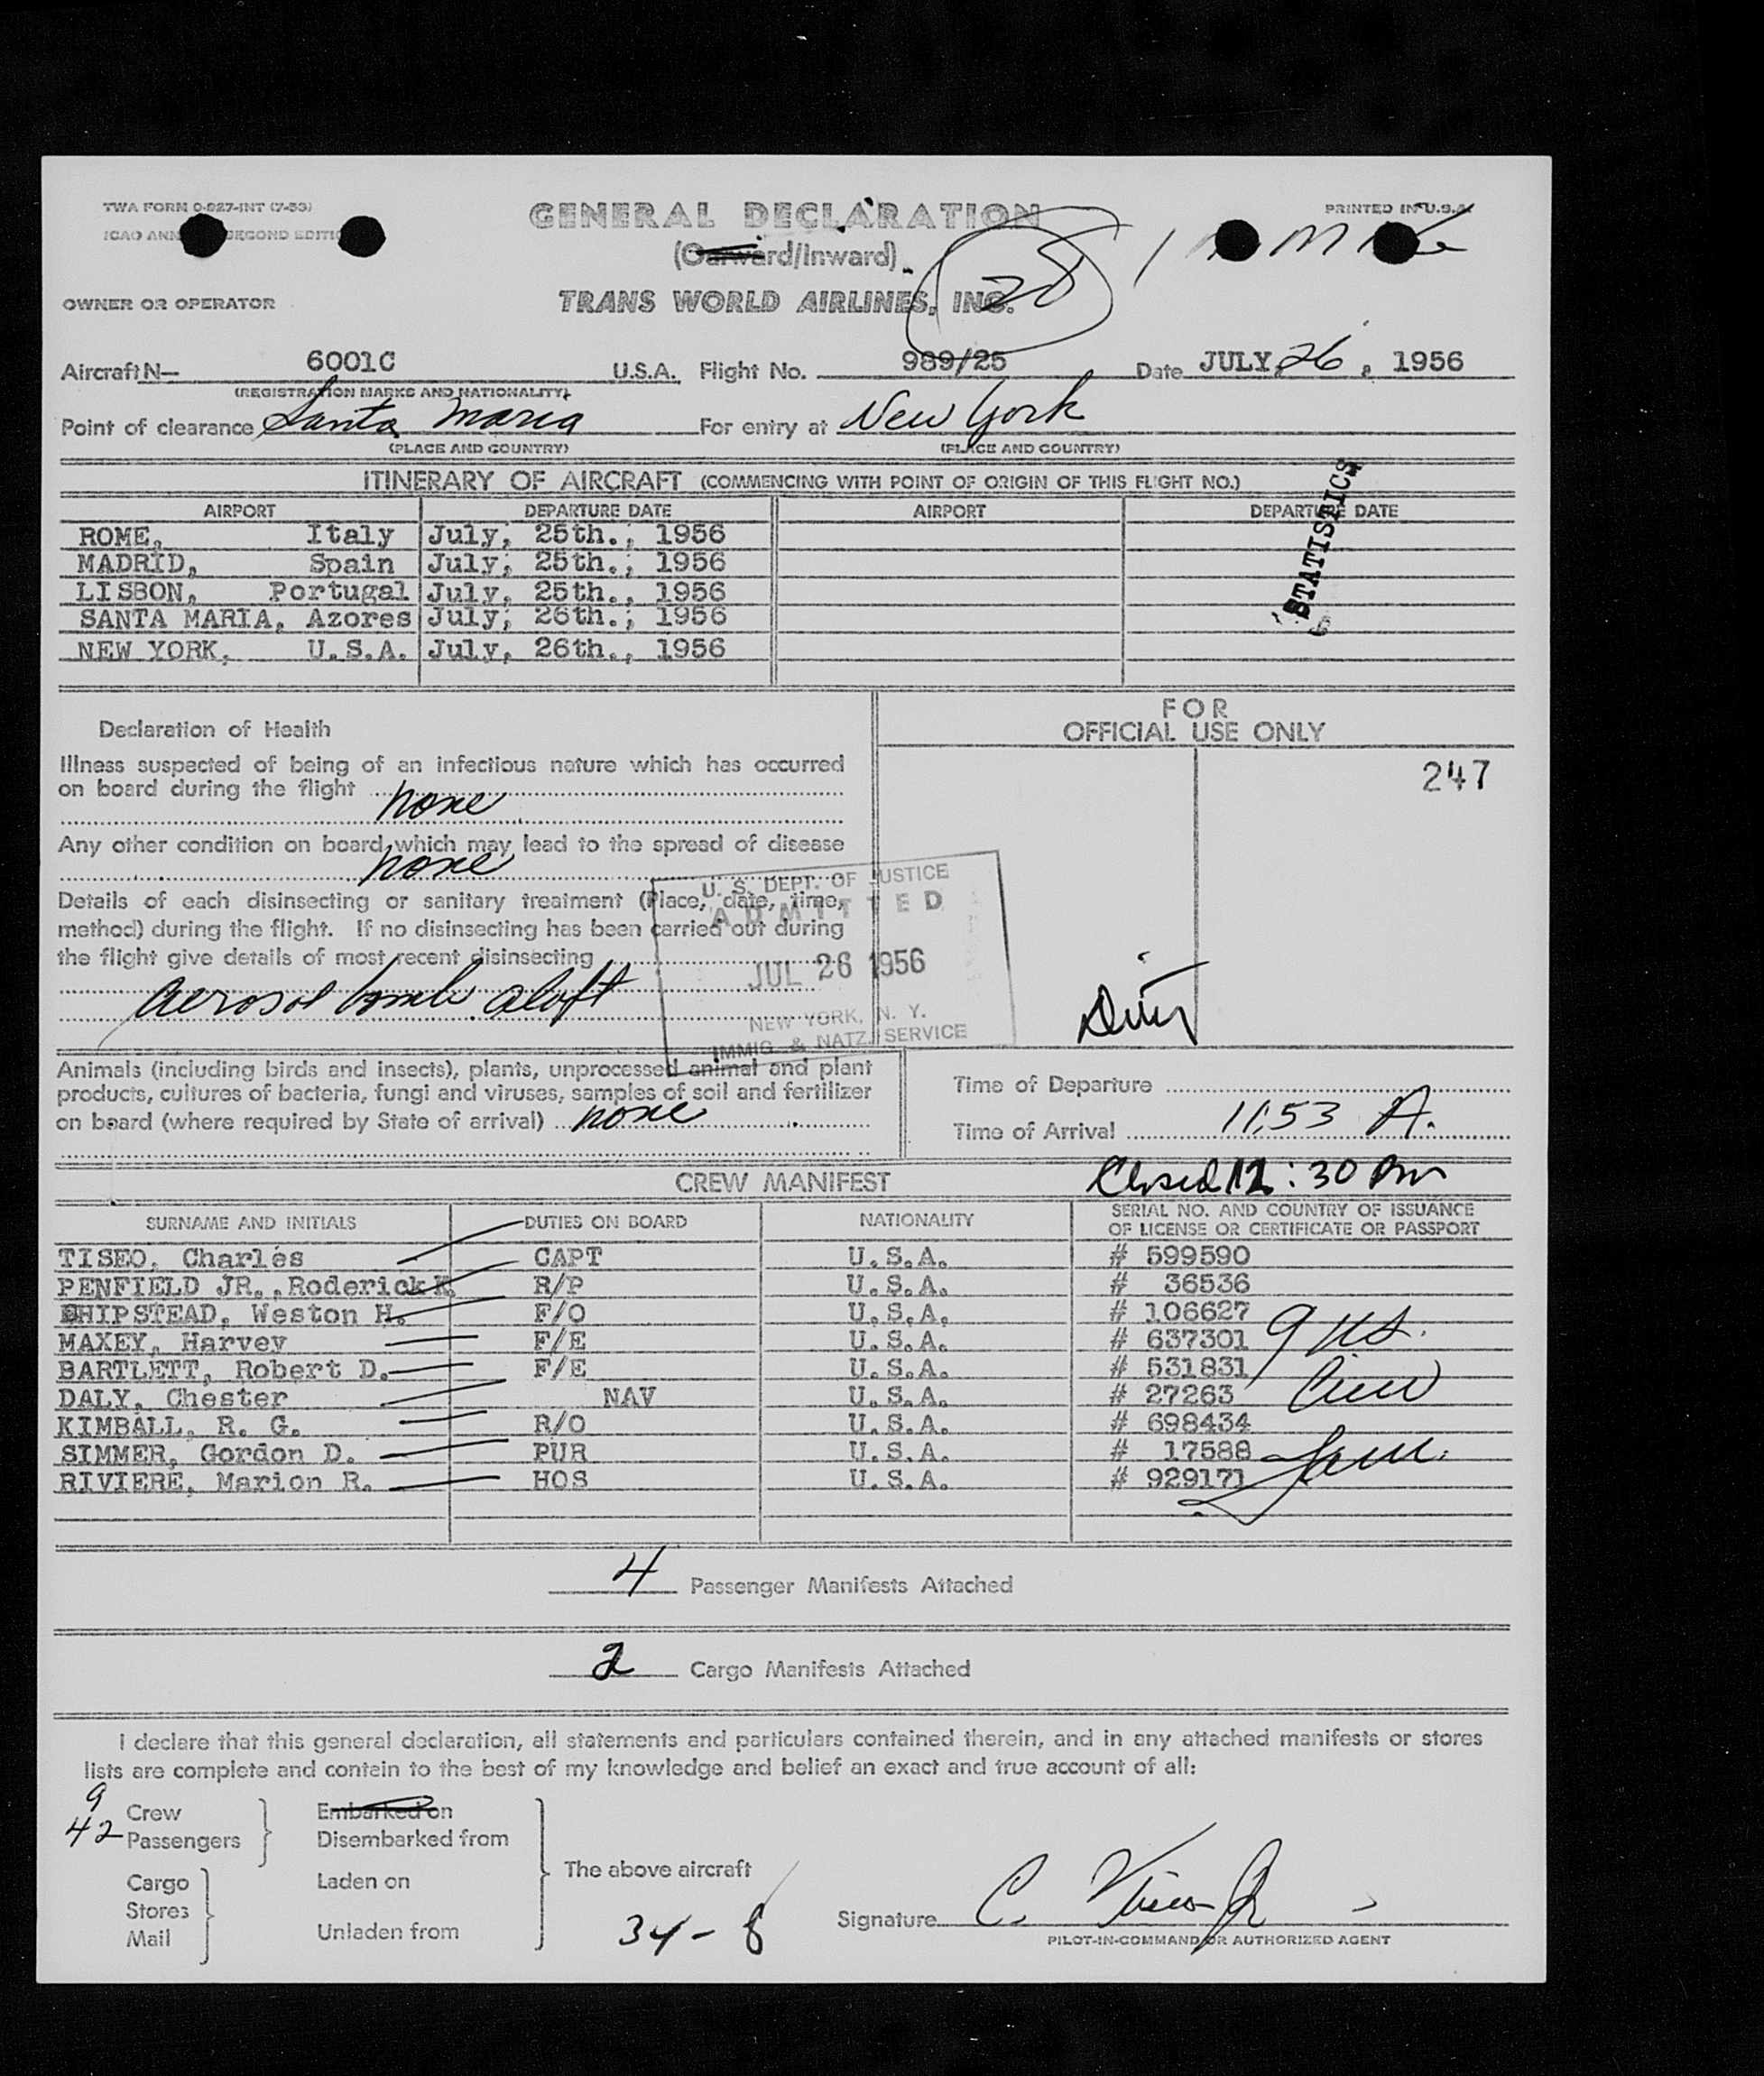 TWA FORM 0-827-INT (7-53)
GENERAL DECLARATION
PRINTED IN U.S.A.
ICAO SECOND
(Outward/Inward)
28
OWNER OR OPERATOR
TRANS WORLD AIRLINES, INC.
Aircraft N— 6001C U.S.A. Flight No. 989/25 Date JULY, 26, 1956
(REGISTRATION MARKS AND NATIONALITY)
Point of clearance Santa Maria For entry at New York
(PLACE AND COUNTRY) (PLACE AND COUNTRY)
ITINERARY OF AIRCRAFT (COMMENCING WITH POINT OF ORIGIN OF THIS FLIGHT NO.)
AIRPORT DEPARTURE DATE AIRPORT DEPARTURE DATE
ROME, Italy July, 25th., 1956
MADRID, Spain July, 25th., 1956
LISBON, Portugal July, 25th., 1956
SANTA MARIA, Azores July, 26th., 1956
NEW YORK, U.S.A. July, 26th., 1956
STATISTICS
FOR
OFFICIAL USE ONLY
247
Declaration of Health
Illness suspected of being of an infectious nature which has occurred
on board during the flight
none
Any other condition on board which may lead to the spread of disease
none
Details of each disinsecting or sanitary treatment (Place, date, time,
method) during the flight. If no disinsecting has been carried out during
the flight give details of most recent disinsecting
Aerosol bomb aloft
U. S. DEPT. OF JUSTICE
ADMITTED
JUL 26 1956
NEW YORK, N. Y.
IMMIG. & NATZ. SERVICE
Animals (including birds and insects), plants, unprocessed animal and plant
products, cultures of bacteria, fungi and viruses, samples of soil and fertilizer
on board (where required by State of arrival) none
Time of Departure
Time of Arrival 11:53 A.
CREW MANIFEST
Closed 12:30 Pm
SURNAME AND INITIALS DUTIES ON BOARD NATIONALITY SERIAL NO. AND COUNTRY OF ISSUANCE
OF LICENSE OR CERTIFICATE OR PASSPORT
TISEO, Charles CAPT U.S.A. # 599590
PENFIELD JR., Roderick K. R/P U.S.A. # 36536
SHIPSTEAD, Weston H. F/O U.S.A. # 106627
MAXEY, Harvey F/E U.S.A. # 637301
BARTLETT, Robert D. F/E U.S.A. # 531831
DALY, Chester NAV U.S.A. # 27263
KIMBALL, R. G. R/O U.S.A. # 698434
SIMMER, Gordon D. PUR U.S.A. # 17588
RIVIERE, Marion R. HOS U.S.A. # 929171
9 US.
Crew
4 Passenger Manifests Attached
2 Cargo Manifests Attached
I declare that this general declaration, all statements and particulars contained therein, and in any attached manifests or stores
lists are complete and contain to the best of my knowledge and belief an exact and true account of all:
9 Crew
42 Passengers
Embarked on
Disembarked from
Cargo
Stores
Mail
Laden on
Unladen from
The above aircraft
34-8
Signature C. Tiseo Jr
PILOT-IN-COMMAND OR AUTHORIZED AGENT